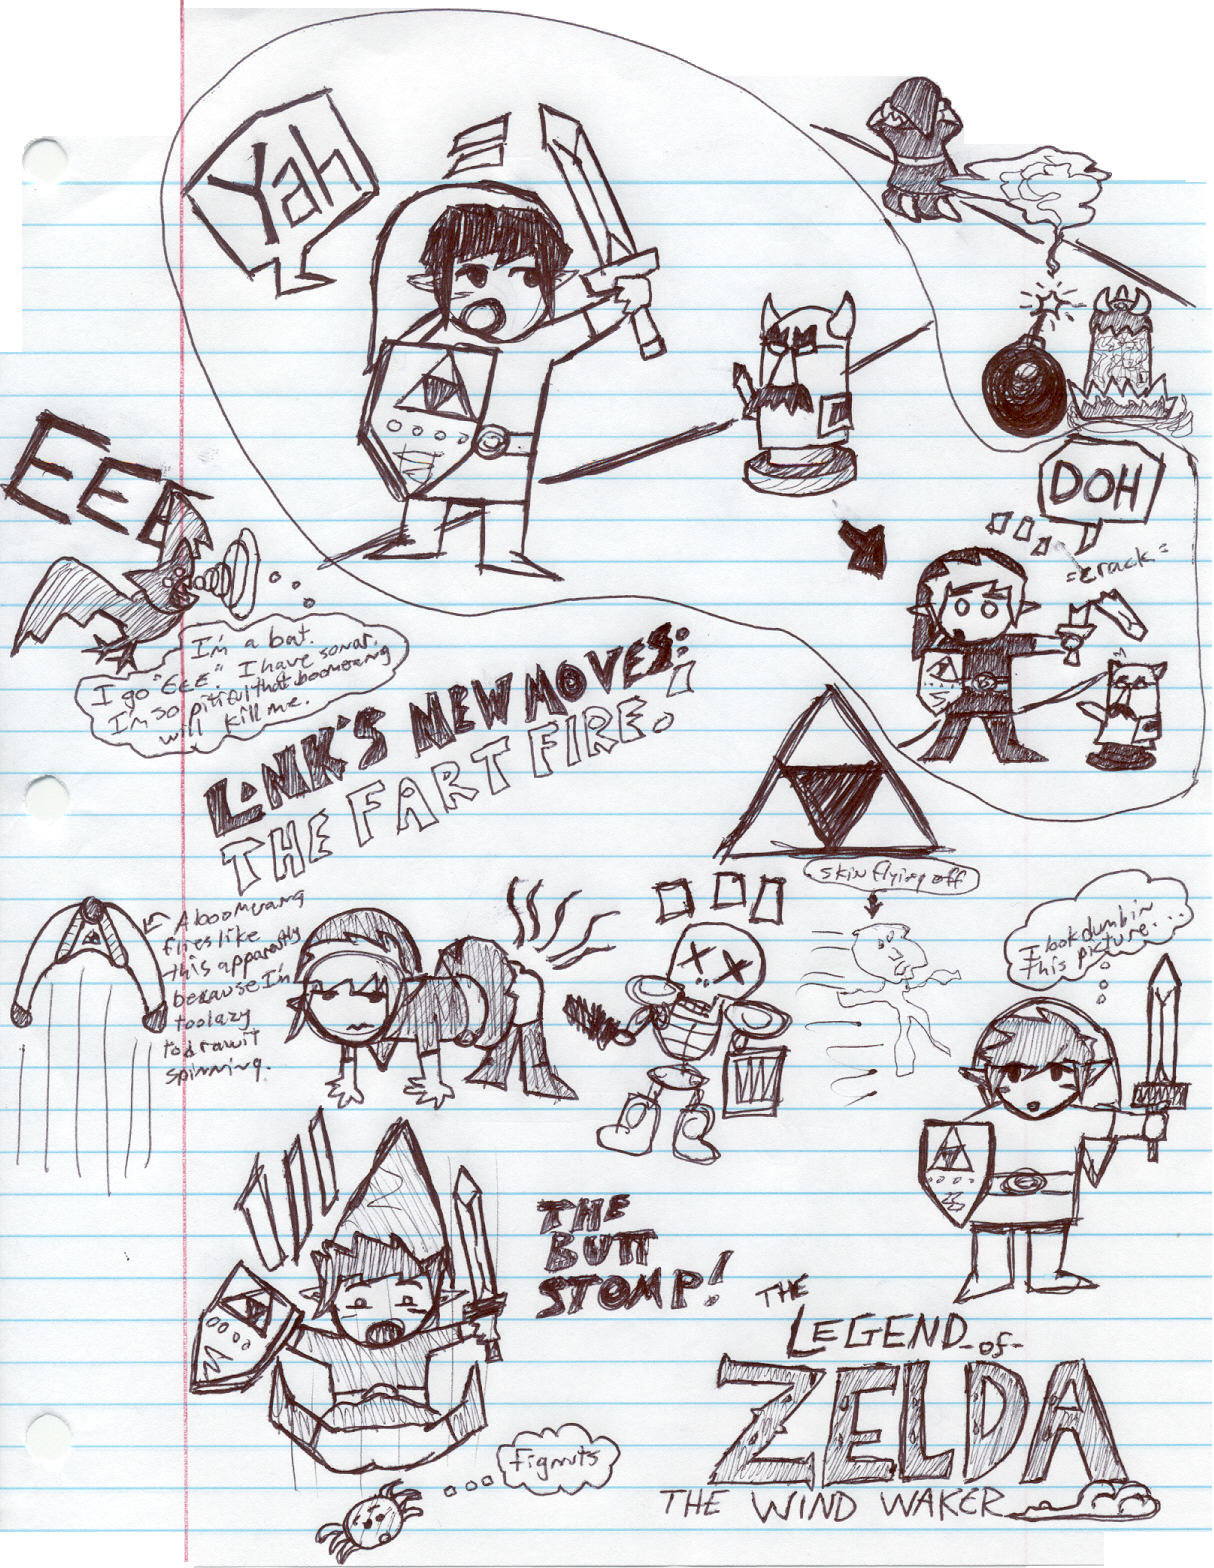 Yah
EEE
DOH
=crack=
I'm a bat.
I go "EEE." I have sonar.
I'm so pitiful that boomerang
will kill me.
LINK'S NEW MOVES:
THE FART FIRE.
skin flying off
A boomerang
fires like
this apparently
because I'm
too lazy
to draw it
spinning.
I look dumb in
this picture...
THE
BUTT
STOMP!
THE
LEGEND-of-
ZELDA
THE WIND WAKER
fignuts